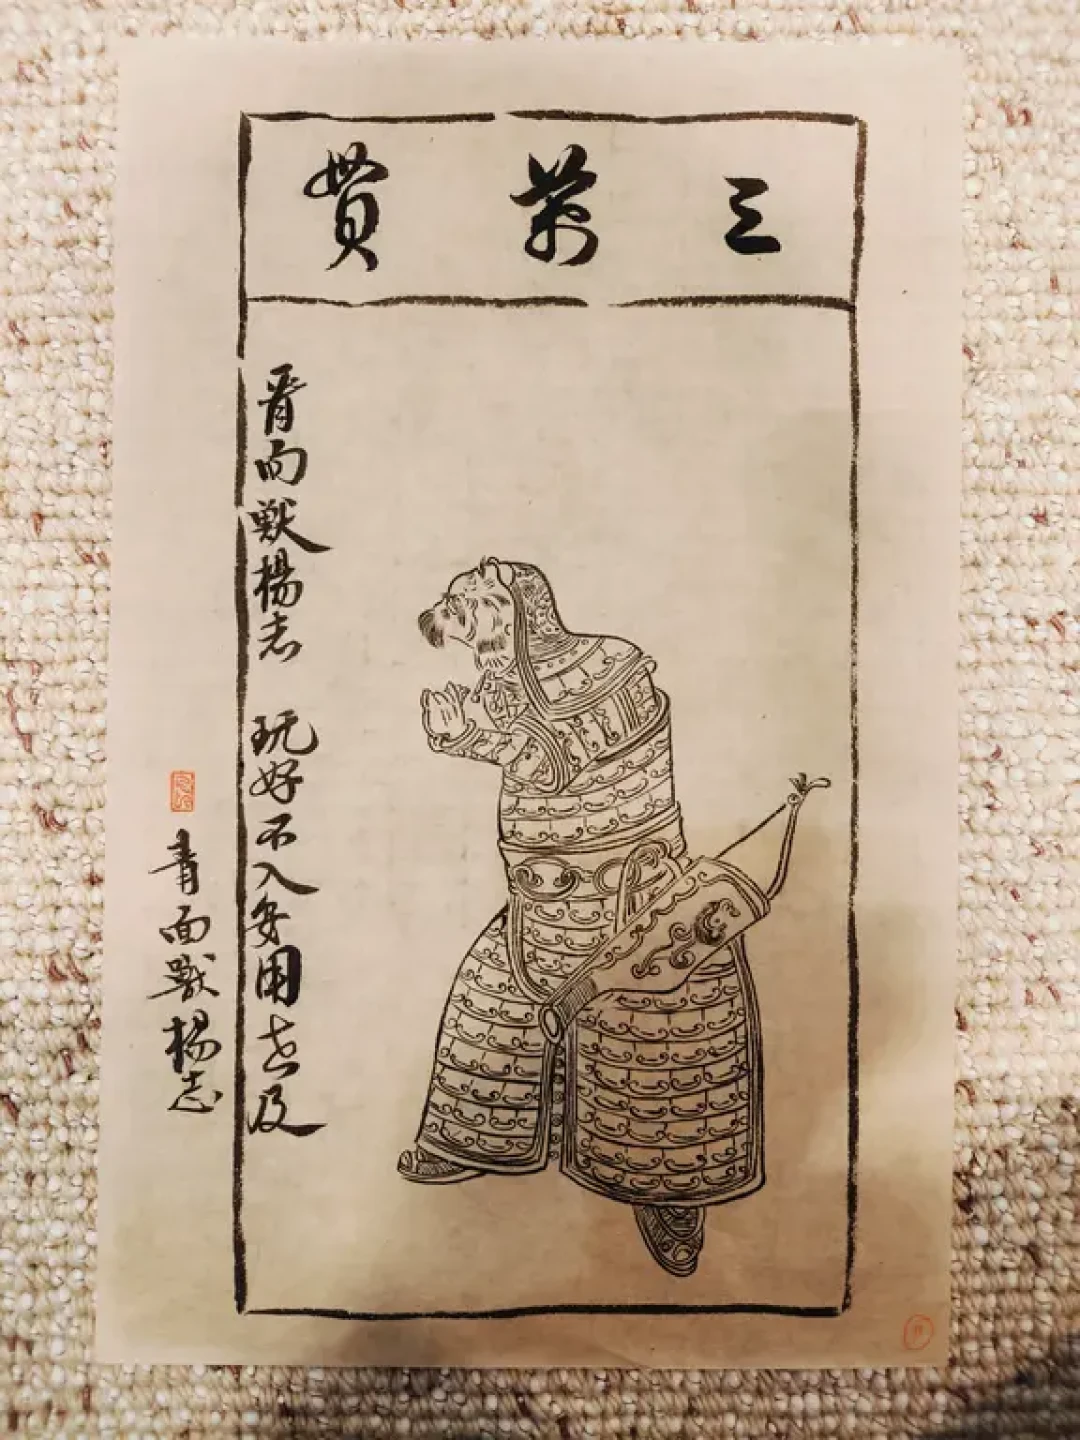 三萬貫
青面獸楊志 玩好不入安用世及
青面獸楊志